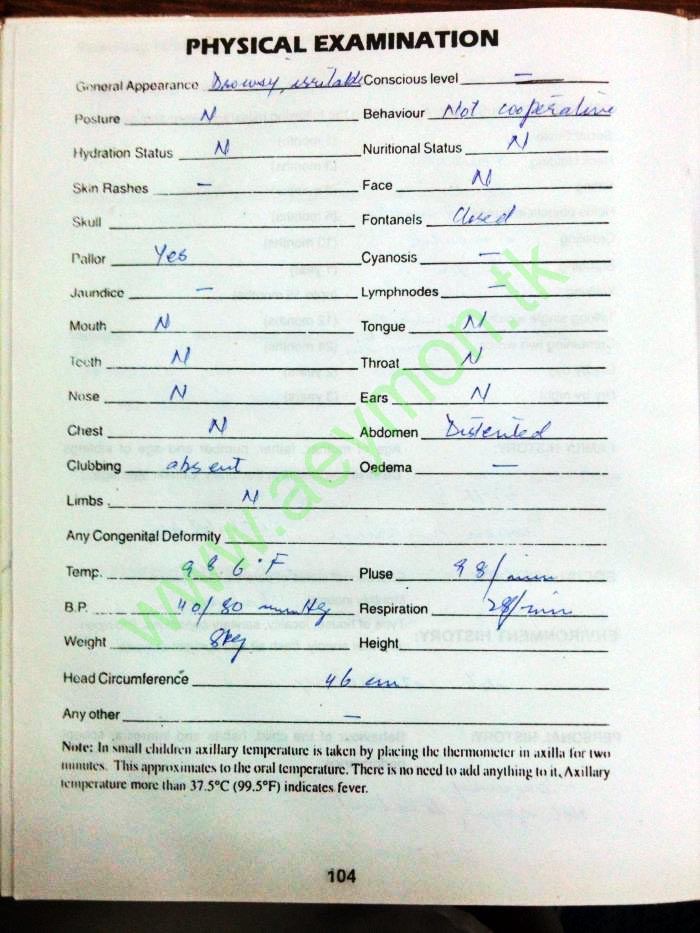 PHYSICAL EXAMINATION
General Appearance Drowsy, irritable Conscious level —
Posture N Behaviour Not cooperative
Hydration Status N Nuritional Status N
Skin Rashes – Face N
Skull Fontanels Closed
Pallor Yes Cyanosis –
Jaundice – Lymphnodes –
Mouth N Tongue N
Teeth N Throat N
Nose N Ears N
Chest N Abdomen Distented
Clubbing absent Oedema –
Limbs N
Any Congenital Deformity
Temp. 98.6°F Pluse 98/min
B.P. 110/80 mmHg Respiration 28/min
Weight 8kg Height
Head Circumference 46 cm
Any other –
Note: In small children axillary temperature is taken by placing the thermometer in axilla for two
minutes. This approximates to the oral temperature. There is no need to add anything to it. Axillary
temperature more than 37.5°C (99.5°F) indicates fever.
104
www.aeymon.tk